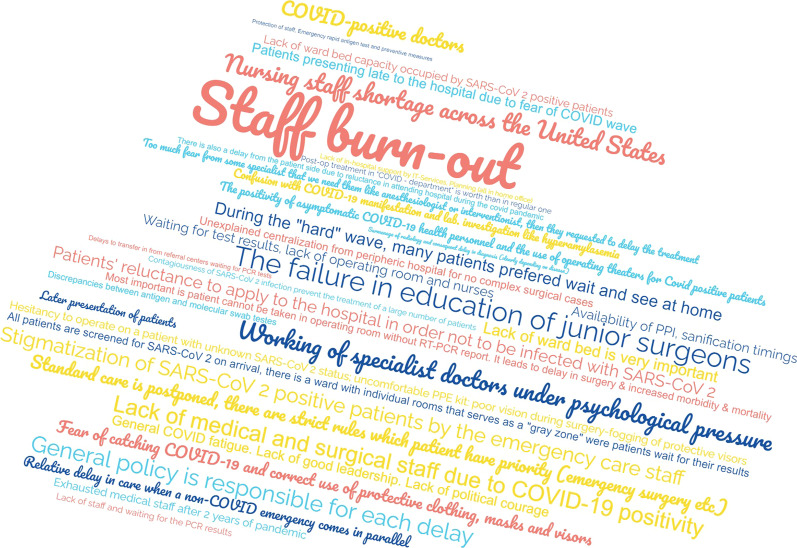 COVID-positive doctors
Protection of staff, Emergency rapid antigen test and preventive measures
Lack of ward bed capacity occupied by SARS-CoV 2 positive patients
Patients presenting late to the hospital due to fear of COVID wave
Nursing staff shortage across the United States
Staff burn-out
Lack of in-hospital support by IT Services (Working lab in home office)
Post-op treatment in "COVID - department" is worth than in regular one
There is also a delay from the patient side due to reluctance in attending hospital during the covid pandemic
Too much fear from some specialist that we need them like anesthesiologist or interventionist, then they requested to delay the treatment
Confusion with COVID-19 manifestation and lab. investigation like hyperamylasemia
The positivity of asymptomatic COVID-19 health personnel and the use of operating theaters for Covid positive patients
During the "hard" wave, many patients prefered wait and see at home
Unexplained centralization from peripheric hospital for no complex surgical cases
Waiting for test results, lack of operating room and nurses
Delays to transfer in from referral centers waiting for PCR tests
The failure in education of junior surgeons
Contagiousness of SARS-CoV 2 infection prevent the treatment of a large number of patients
Availability of PPI, sanification timings
Patients' reluctance to apply to the hospital in order not to be infected with SARS-CoV 2
Most important is patient cannot be taken in operating room without RT-PCR report. It leads to delay in surgery & increased morbidity & mortality
Discrepancies between antigen and molecular swab testes
Lack of ward bed is very important
Later presentation of patients
Working of specialist doctors under psychological pressure
Hesitancy to operate on a patient with unknown SARS-CoV 2 status; uncomfortable PPE kit; poor vision during surgery-fogging of protective visors
All patients are screened for SARS-CoV 2 on arrival, there is a ward with individual rooms that serves as a "gray zone" were patients wait for their results
Stigmatization of SARS-CoV 2 positive patients by the emergency care staff
Standard care is postponed, there are strict rules which patient have priority (emergency surgery etc)
Lack of medical and surgical staff due to COVID-19 positivity
General COVID fatigue. Lack of good leadership. Lack of political courage
Fear of catching COVID-19 and correct use of protective clothing, masks and visors
General policy is responsible for each delay
Relative delay in care when a non-COVID emergency comes in parallel
Exhausted medical staff after 2 years of pandemic
Lack of staff and waiting for the PCR results